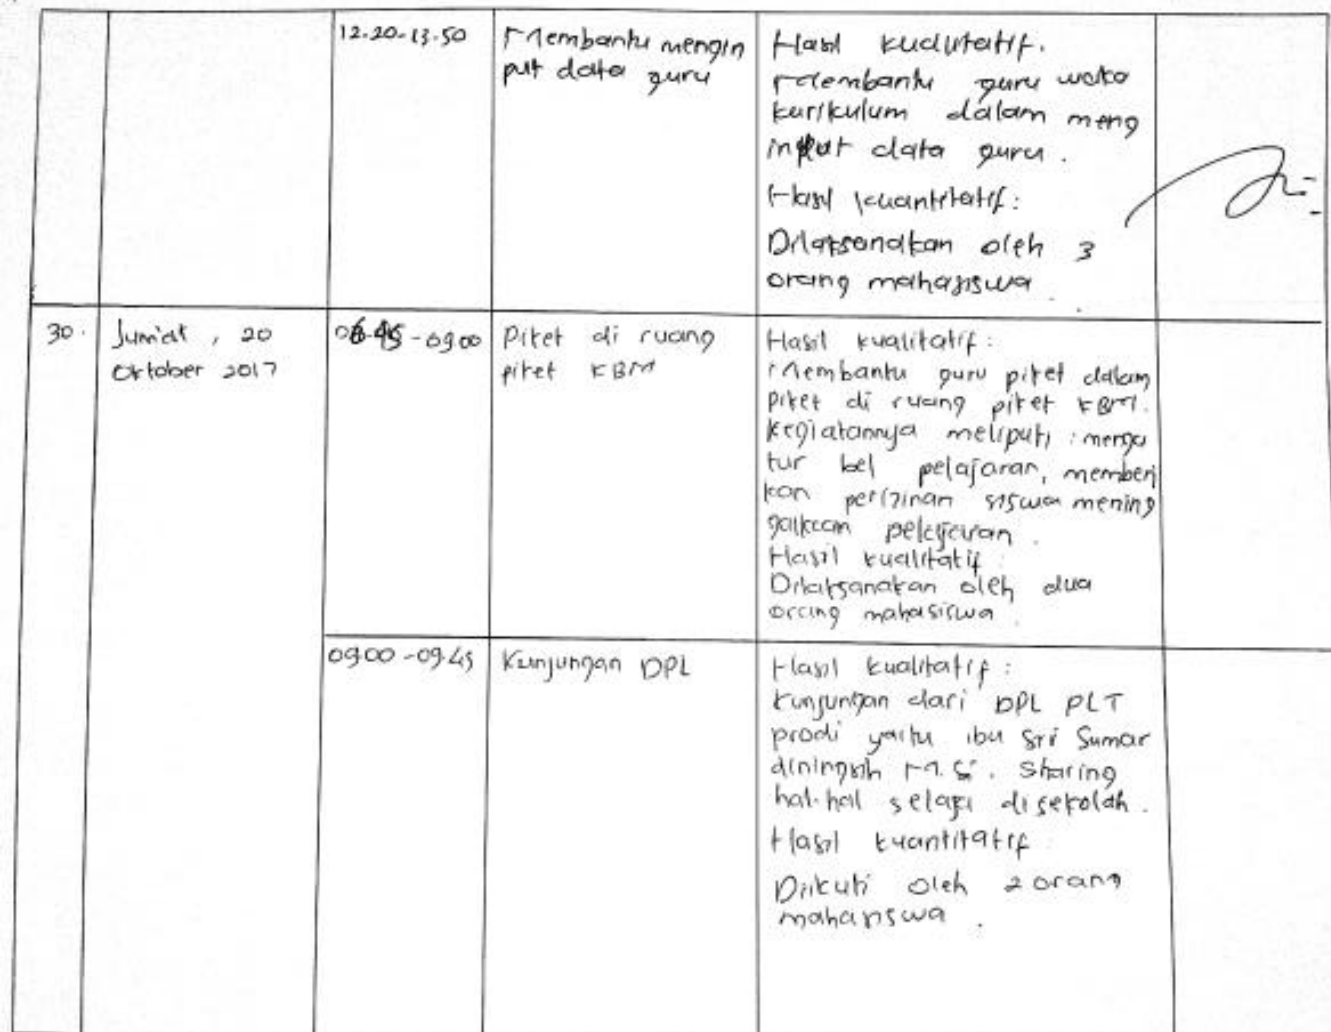 12.20-13.50
Membantu mengin
put data guru
Hasil kualitatif.
Membantu guru waka
kurikulum dalam meng
input data guru.
Hasil kuantitatif:
Dilaksanakan oleh 3
orang mahasiswa.
30.
Jum'at, 20
Oktober 2017
06.45-09.00
Piket di ruang
piket KBM
Hasil kualitatif:
Membantu guru piket dalam
piket di ruang piket KBM.
Kegiatannya meliputi: menga
tur bel pelajaran, memberi
kan perizinan siswa mening
galkan pelajaran.
Hasil kualitatif:
Dilaksanakan oleh dua
orang mahasiswa.
09.00-09.45
Kunjungan DPL
Hasil kualitatif:
Kunjungan dari DPL PLT
prodi yaitu ibu Sri Sumar
diningsih M.Si. Sharing
hal-hal selagi disekolah.
Hasil kuantitatif
Diikuti oleh 2 orang
mahasiswa.